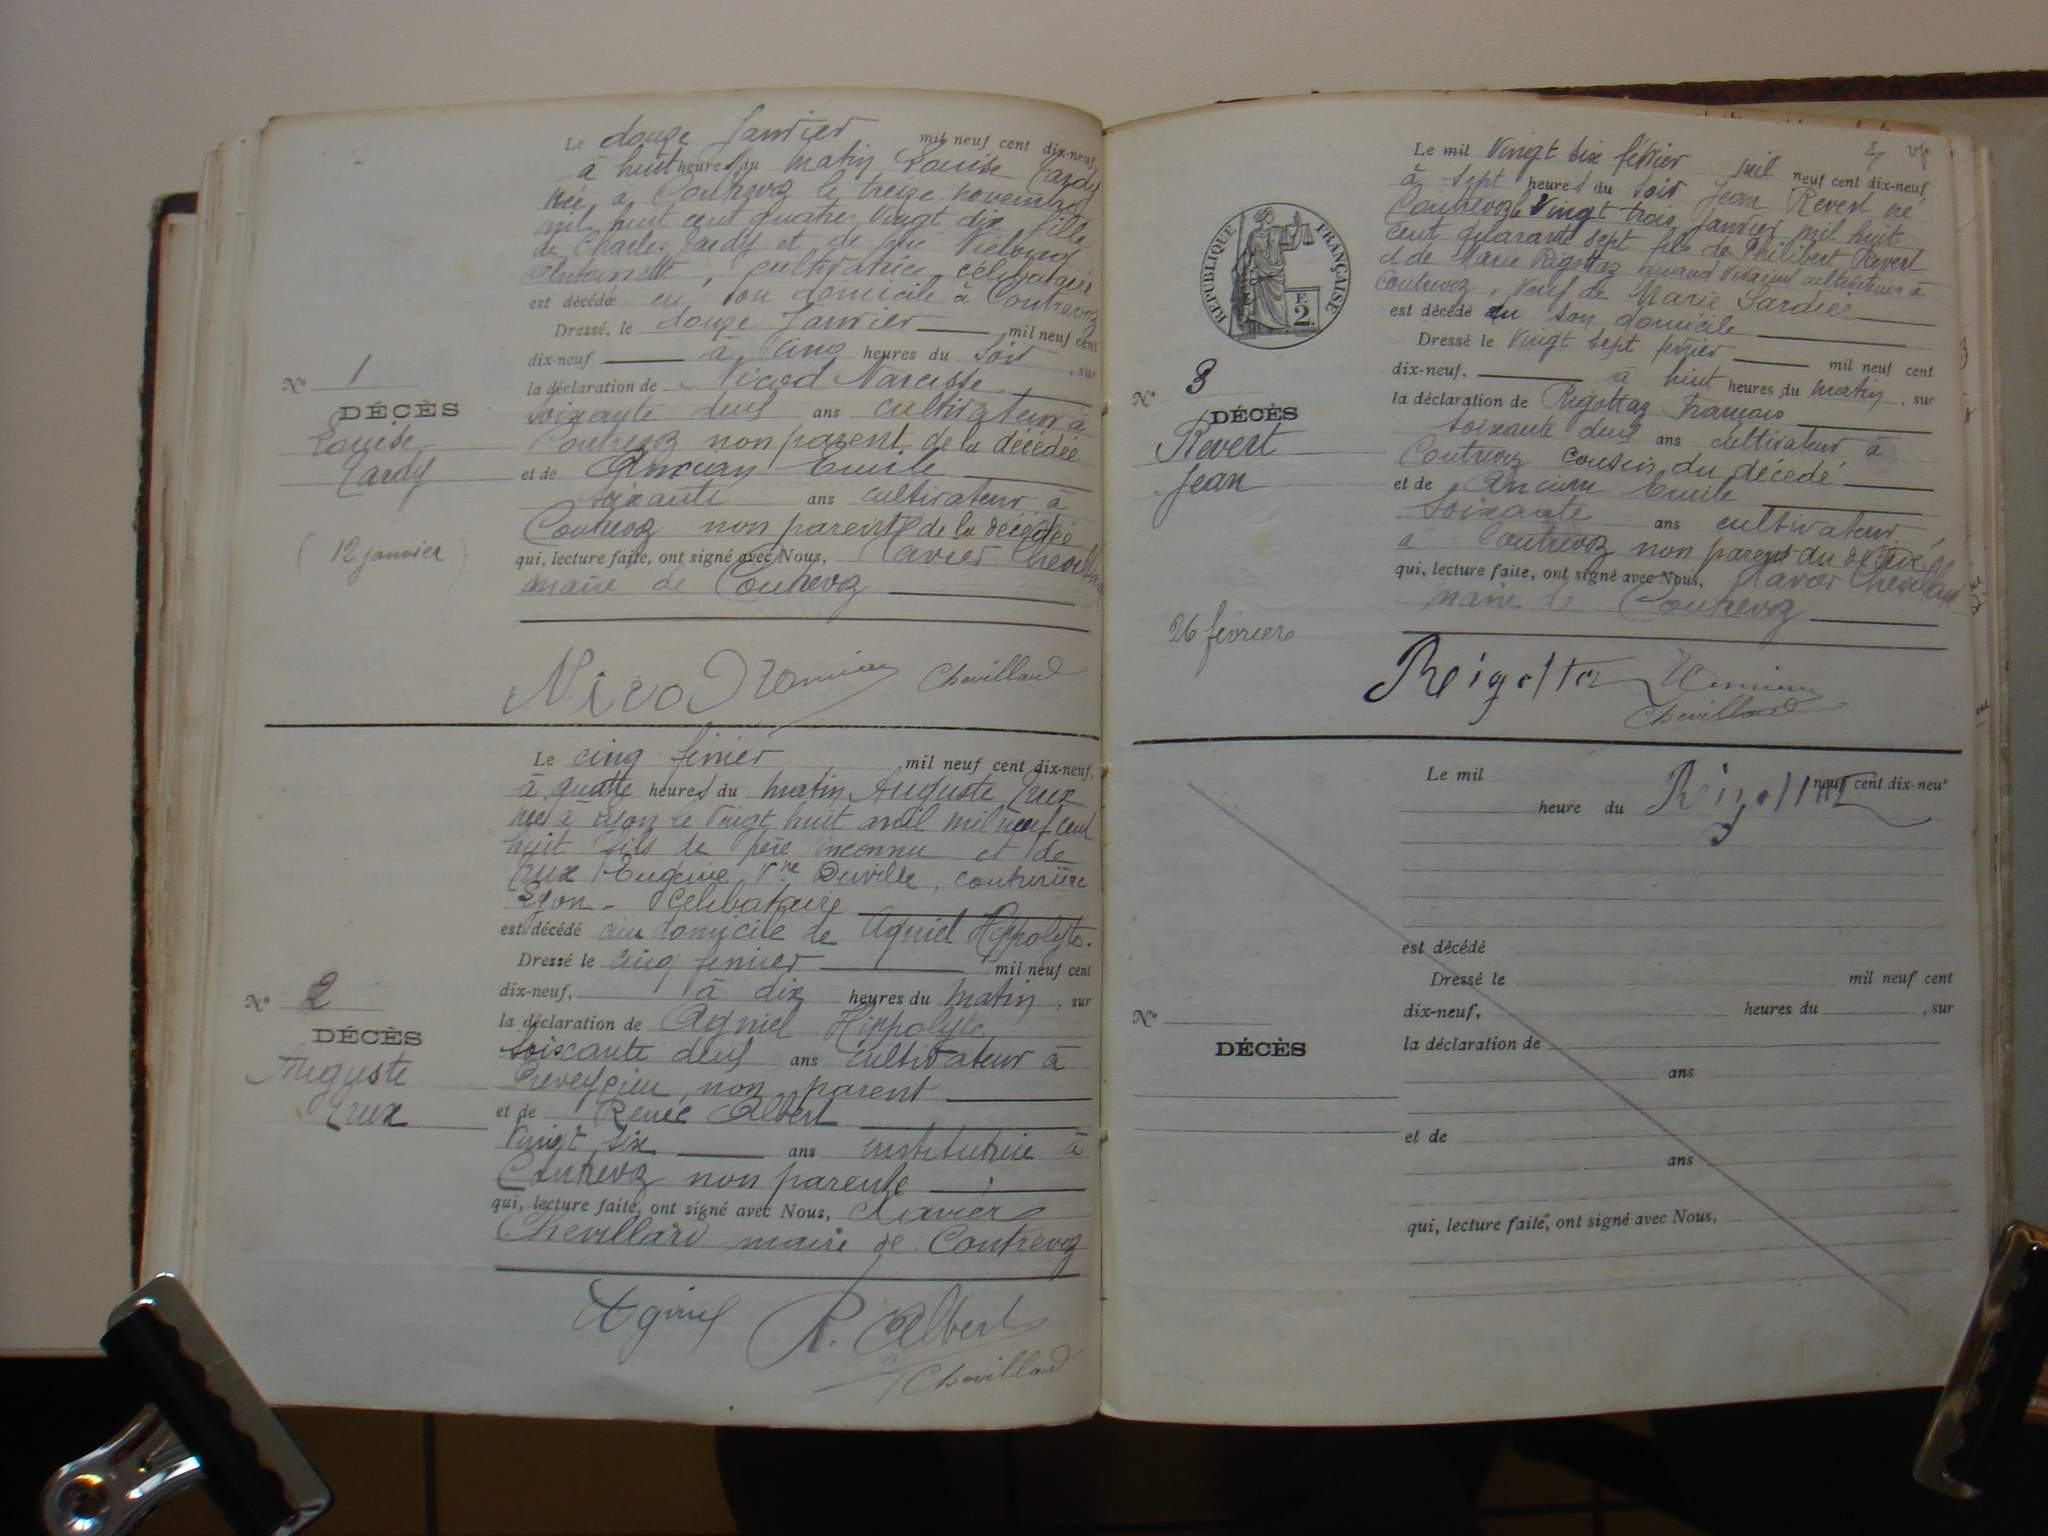 Le douze Janvier mil neuf cent dix-neuf,
à huit heures du matin Louise Jardy
née à Contrevoz le treize novembre
mil huit cent quatre vingt dix fille
de Charles Jardy et de
Antoinette, cultivatrice célibataire
est décédée en son domicile à Contrevoz
Dressé, le douze Janvier mil neuf cent
dix-neuf à cinq heures du soir, sur
la déclaration de Nicod Narcisse
soixante deux ans cultivateur à
Contrevoz non parent de la décédée
et de Emile
soixante ans cultivateur à
Contrevoz non parent de la décédée
qui, lecture faite, ont signé avec Nous, Xavier Chevillard
maire de Contrevoz
Nº 1
DÉCÈS
Louise
Jardy
(12 janvier)
Nicod Chevillard
Le cinq février mil neuf cent dix-neuf,
à quatre heures du matin Auguste
née à Lyon le vingt huit avril mil neuf cent
huit fils de père inconnu et de
Eugénie Vve Deville, couturière
Lyon - Célibataire
est décédé au domicile de Agniel Hippolyte.
Dressé le cinq février mil neuf cent
dix-neuf, à dix heures du matin, sur
la déclaration de Agniel Hippolyte
soixante deux ans cultivateur à
Preveyzieu, non parent
et de Renée Albert
vingt six ans institutrice à
Contrevoz non parente
qui, lecture faite, ont signé avec Nous, Xavier
Chevillard maire de Contrevoz
Nº 2
DÉCÈS
Auguste
Agniel R. Albert
Chevillard
Le mil vingt six février mil neuf cent dix-neuf,
à sept heures du soir Jean Revert né
Contrevoz le vingt trois Janvier mil huit
cent quarante sept fils de Philibert Revert
et de Marie Rigottaz quand vivaient cultivateurs à
Contrevoz, veuf de Marie Sardier
est décédé en son domicile
Dressé le vingt sept février mil neuf cent
dix-neuf, à huit heures du matin, sur
la déclaration de Rigottaz François
soixante deux ans cultivateur à
Contrevoz cousin du décédé
et de Emile
soixante ans cultivateur
à Contrevoz non parent du décédé
qui, lecture faite, ont signé avec Nous, Xavier Chevillard
maire de Contrevoz
RÉPUBLIQUE FRANÇAISE
F.
2.
Nº 3
DÉCÈS
Revert
Jean
26 février
Rigottaz
Chevillard
Le mil neuf cent dix-neuf
heure du
Rigottaz
est décédé
Dressé le mil neuf cent
dix-neuf, heures du, sur
la déclaration de
ans
et de
ans
qui, lecture faite, ont signé avec Nous,
Nº
DÉCÈS